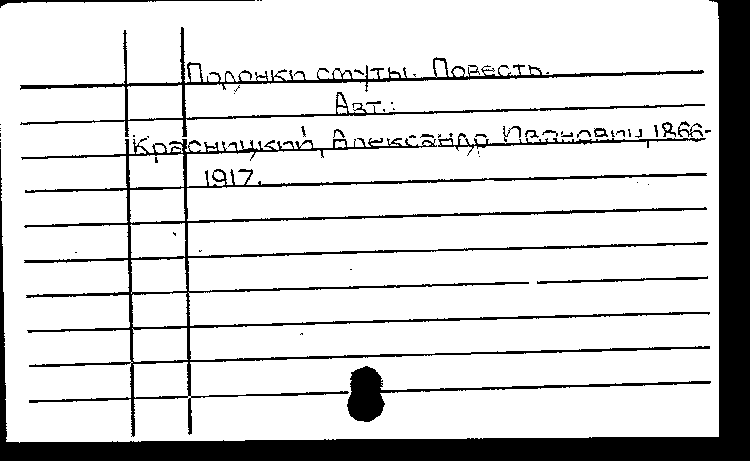 Подонки смуты. Повесть.
Авт.:
Красницкий, Александр Иванович, 1866-
1917.